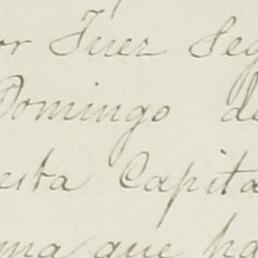 or Juez Seg
Domingo de
esta Capita
ma que ha